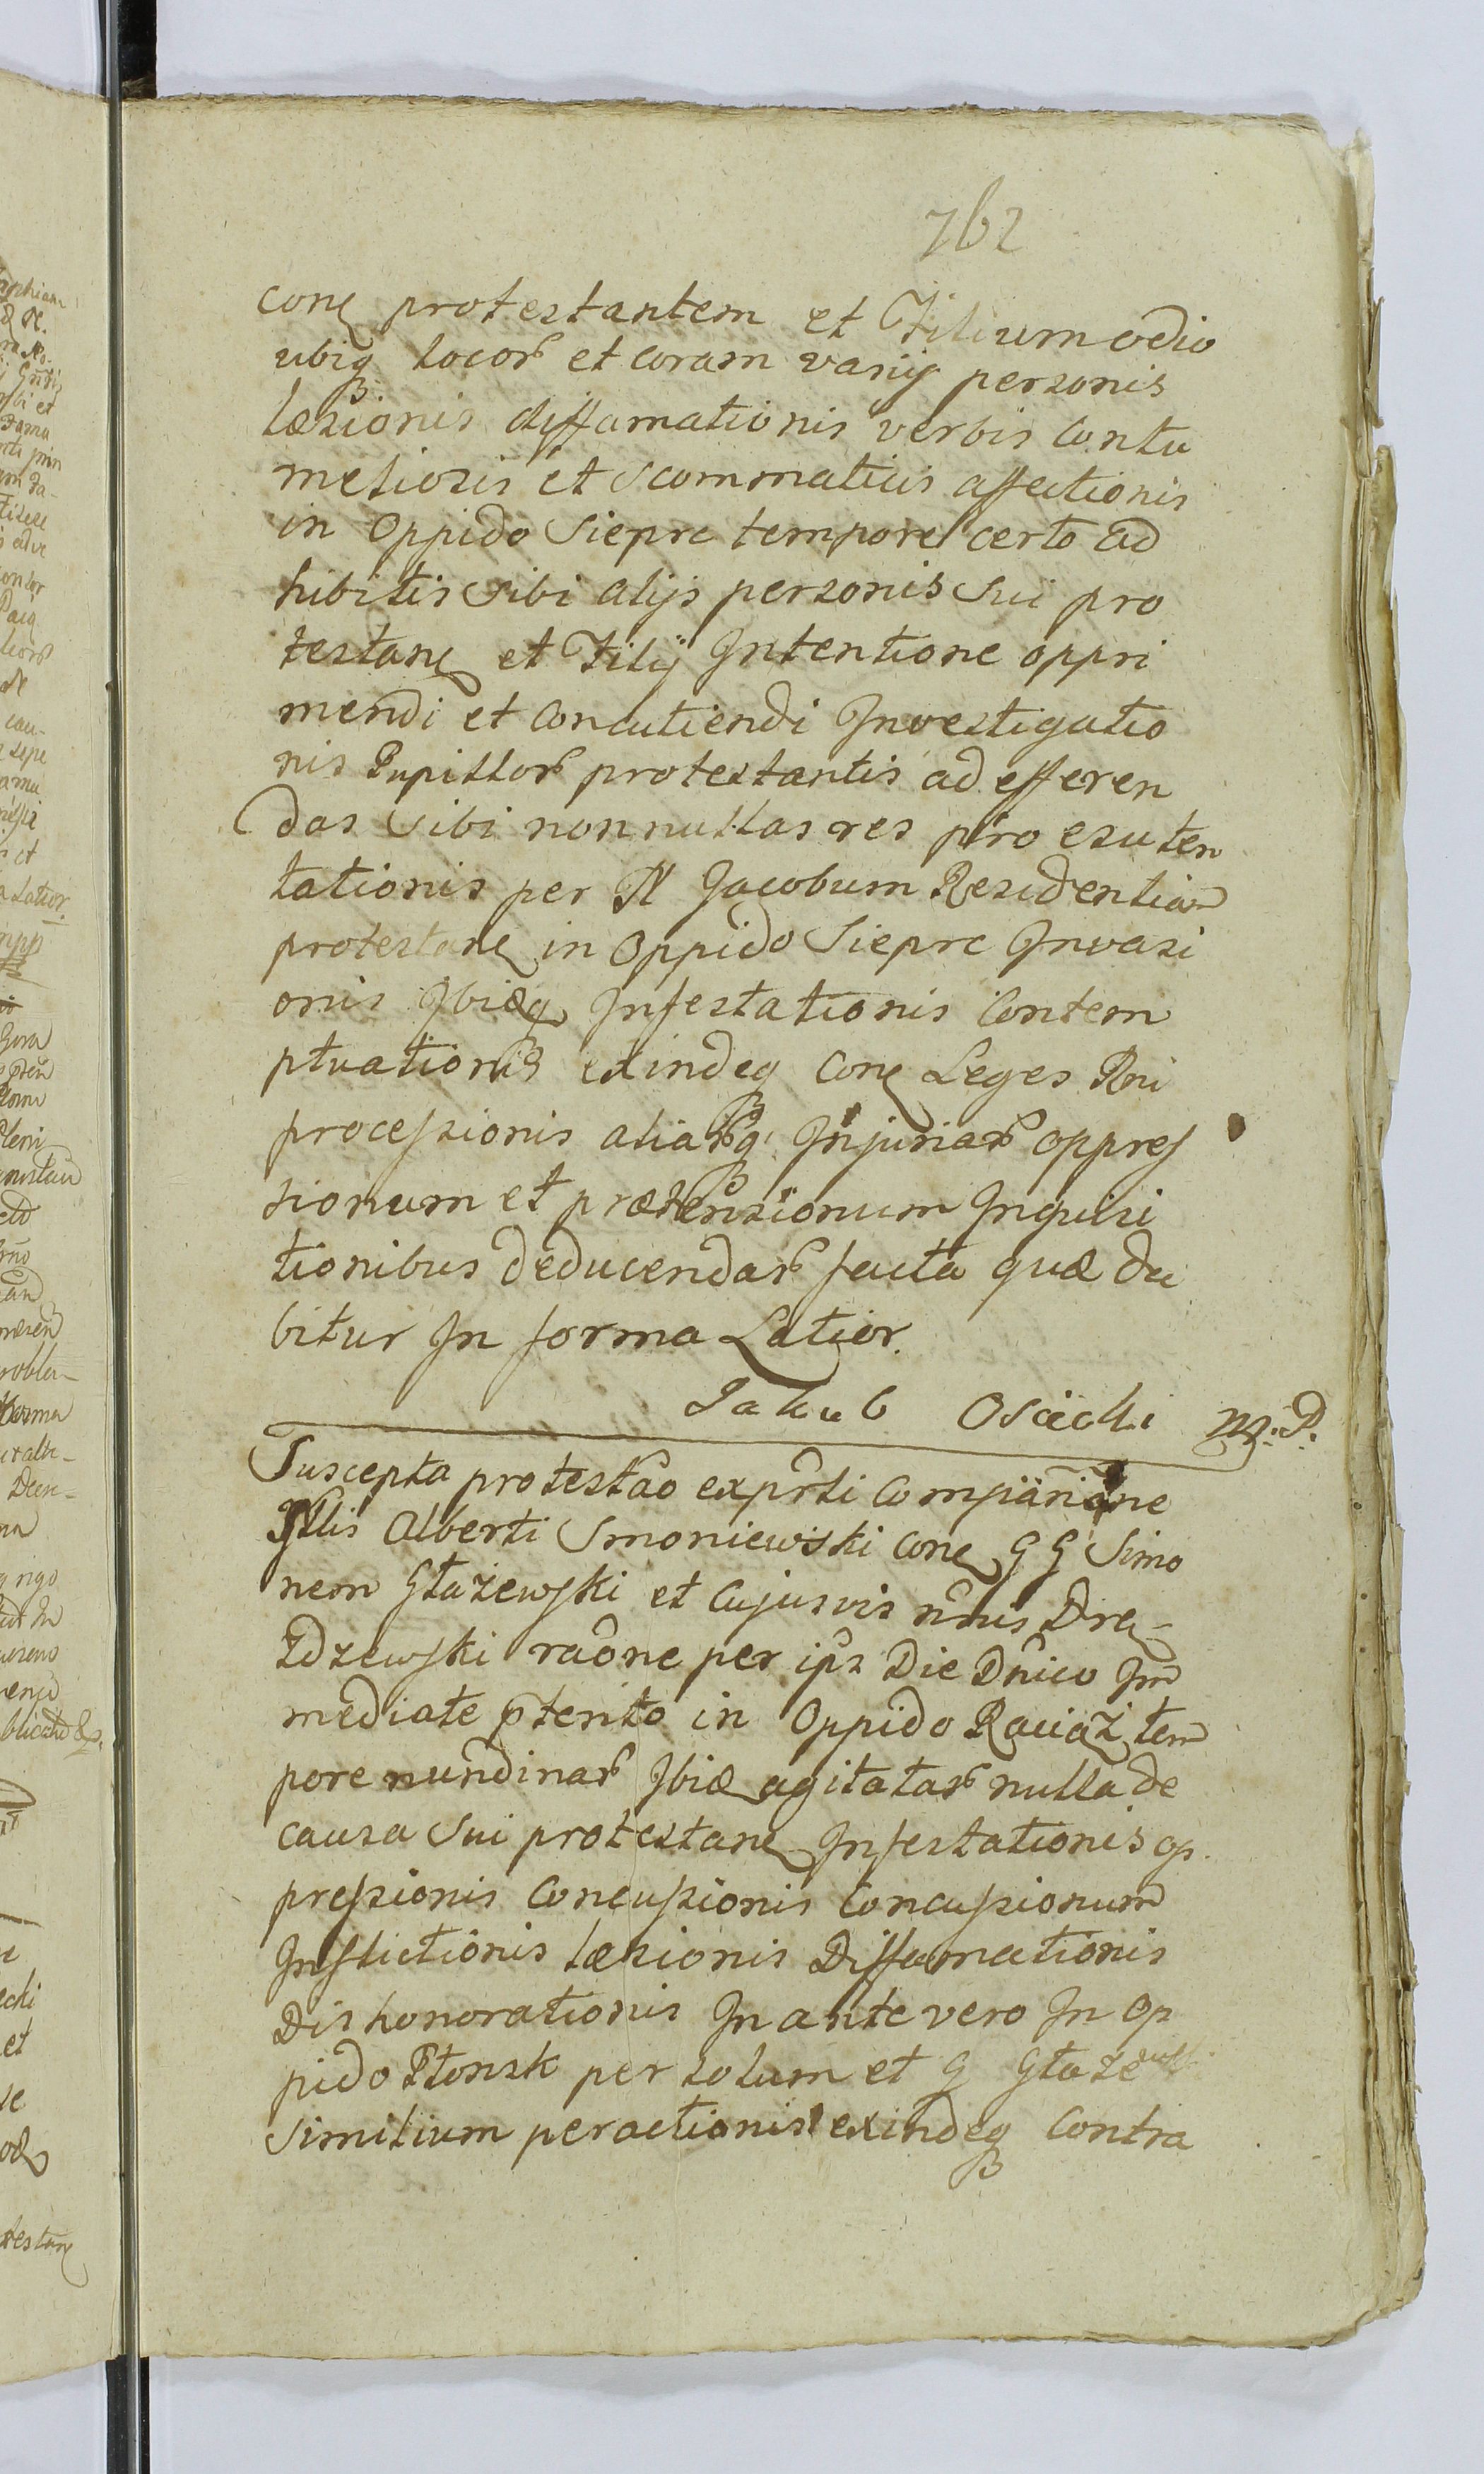 762
conq protestantem et Filium odio
ubiq locor et coram varijs personis
læsionis diffamationis verbis Contu
meliosis et scommaticis affectionis
in Oppido Sieprc tempore certo ad
hibitis sibi alijs personis sui pro
testanq et Filij Intentione oppri
mendi et concutiendi Investigatio
nis Pupillor protestantis ad efferen
das sibi nonnullas res pro
tationis per N Jacobum Residentiam
protestanq in Oppido Sieprc Invasi
onis Ibiq Infestationis Contem
ptuationis exindeq conq Leges Rni
processionis aliarq Injuriar oppres
sionum et prætensionum Inquisi
tionibus deducendar facta quæ da
bitur In forma Latior.
Jakub Osiecki m.P.
Suscepta protestao ex prti Compianone
Alberti Smoniewski conq G G Simo
nem Głażewski et Cujusvis nnis Drą-
żdzewski raone per ips Die Dnico Im
mediate pterito in Oppido Raciąż tem
pore nundinar Ibiæ agitatar nulla de
causa sui protestanq Infestationis op
pressionis Concussionis Concussionum
Inflictionis læsionis Diffamationis
Dishonorationis In ante vero In Op
pido Płonsk per solum et G Głażewsk
similium peractionis exindeq Contra